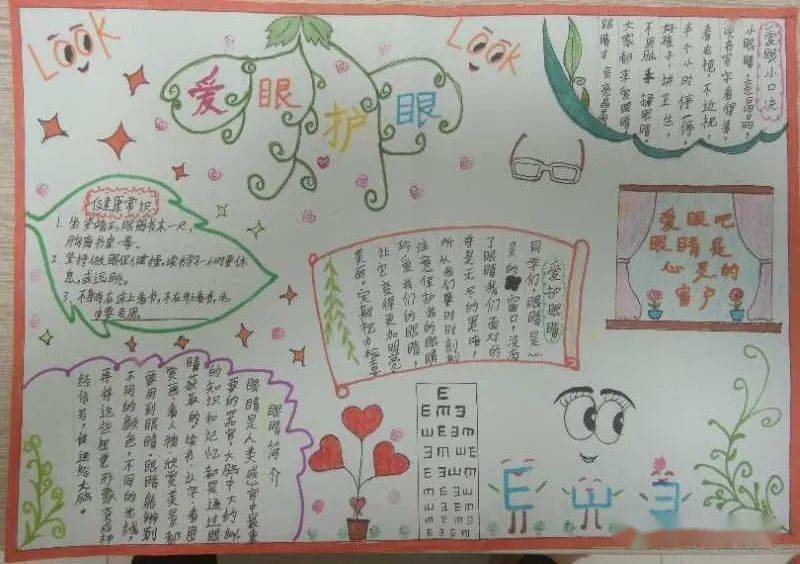 Look
爱眼护眼
Look
爱眼小口决
小眼睛,亮晶晶,
读书写字看得清,
看电视,不近视,
半个小时停一停,
好孩子,讲卫生,
不用脏手揉眼睛,
大家都来爱眼睛,
眼睛才会亮晶晶
健康常识
1. 坐姿端正,眼离书本一尺,
胸离书桌一拳。
2. 坚持做眼保健操,读书写字一小时要休
息,或远眺。
3. 不躺在床上看书,不在车上看书,
爱护眼睛
同学们,眼睛是心
灵的窗口,没有
了眼睛我们面对的
将是无尽的黑暗,
所以我们要时时刻刻
注意保护者的眼睛
珍爱我们的眼睛,
让它变得更加明亮
美丽,定期视力检查
爱眼吧
眼睛是
心灵的
窗户
眼睛简介
眼睛是人类感官中最重
要的器官,大脑中大约80%
的知识和记忆都是通过眼
睛获取的,读书认字,看图
赏画,看人物,欣赏美景都
要用到眼睛,眼睛能辨别
不同的颜色,不同的光线,
再将这些视觉形象变成神
经信号,传送给大脑。
E
E Ш Ǝ